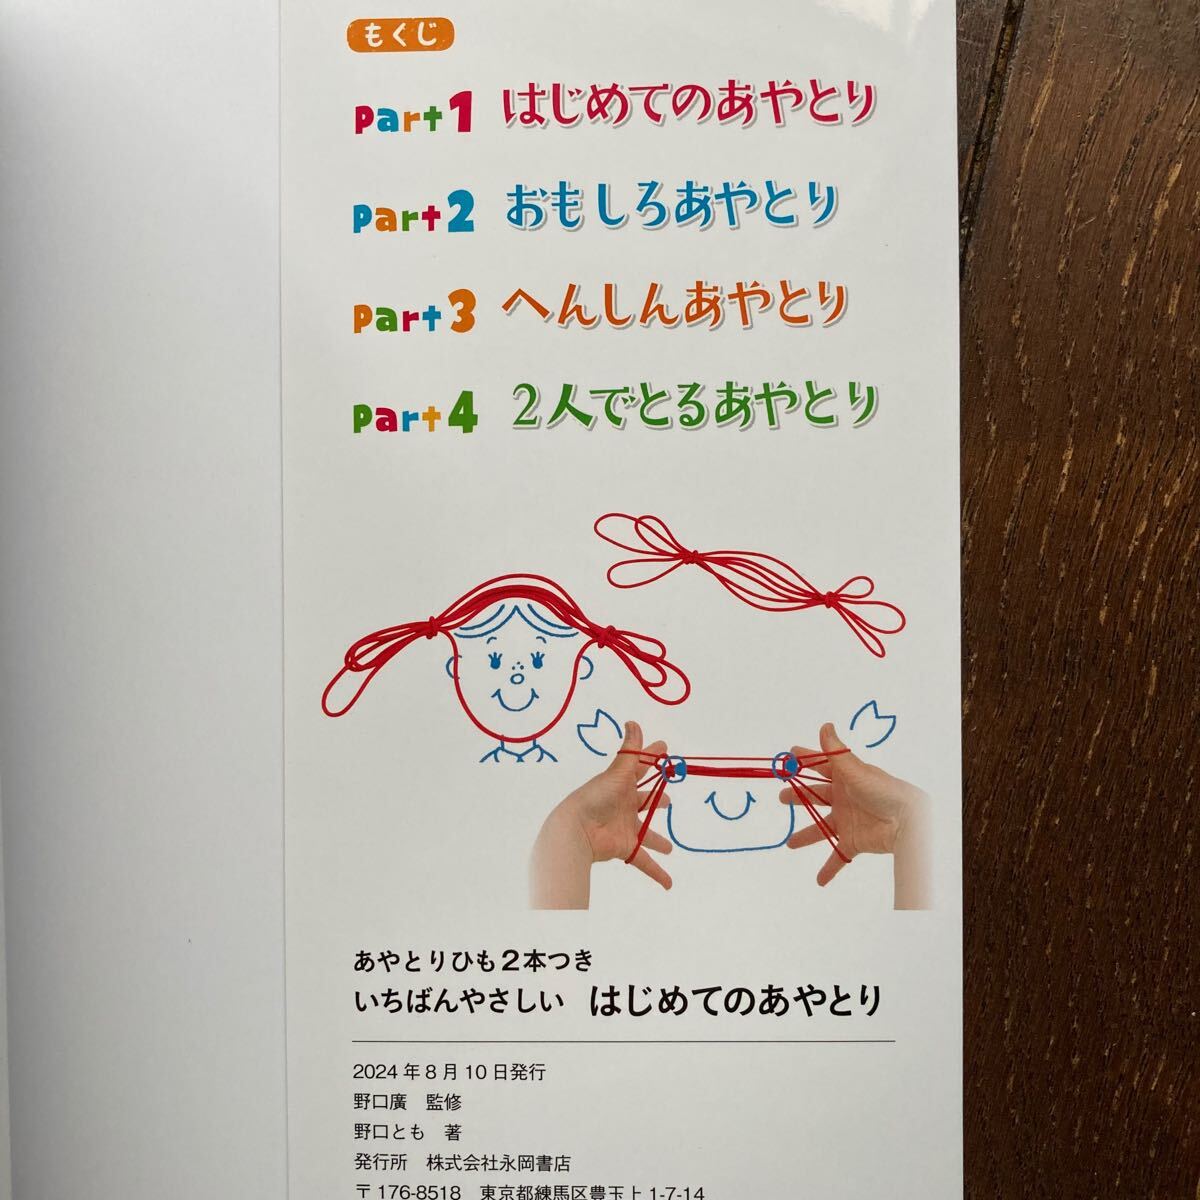 もくじ
Part1 はじめてのあやとり
Part2 おもしろあやとり
Part3 へんしんあやとり
Part4 2人でとるあやとり
あやとりひも2本つき
いちばんやさしい はじめてのあやとり
2024年8月10日発行
野口廣 監修
野口とも 著
発行所 株式会社永岡書店
〒176-8518 東京都練馬区豊玉上1-7-14